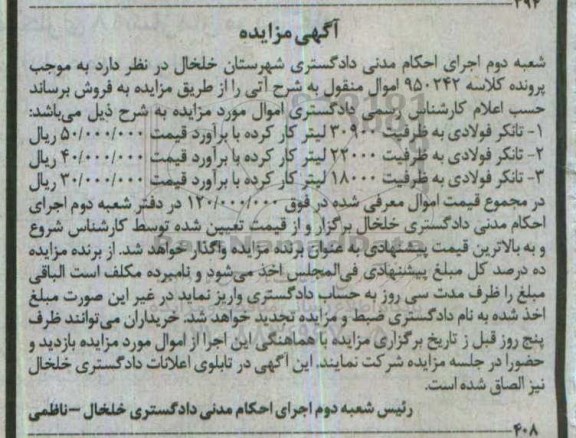 ۳۹۲
آگهی مزایده
شعبه دوم اجرای احکام مدنی دادگستری شهرستان خلخال در نظر دارد به موجب
پرونده کلاسه ۹۵۰۲۴۲ اموال منقول به شرح آتی را از طریق مزایده به فروش برساند
حسب اعلام کارشناس رسمی دادگستری اموال مورد مزایده به شرح ذیل می‌باشد:
۱- تانکر فولادی به ظرفیت ۳۰۹۰۰ لیتر کار کرده با برآورد قیمت ۵۰/۰۰۰/۰۰۰ ریال
۲- تانکر فولادی به ظرفیت ۲۲۰۰۰ لیتر کار کرده با برآورد قیمت ۴۰/۰۰۰/۰۰۰ ریال
۳- تانکر فولادی به ظرفیت ۱۸۰۰۰ لیتر کار کرده با برآورد قیمت ۳۰/۰۰۰/۰۰۰ ریال
در مجموع قیمت اموال معرفی شده در فوق ۱۲۰/۰۰۰/۰۰۰ در دفتر شعبه دوم اجرای
احکام مدنی دادگستری خلخال برگزار و از قیمت تعیین شده توسط کارشناس شروع
و به بالاترین قیمت پیشنهادی به عنوان برنده مزایده واگذار خواهد شد. از برنده مزایده
ده درصد کل مبلغ پیشنهادی فی‌المجلس اخذ می‌شود و نامبرده مکلف است الباقی
مبلغ را ظرف مدت سی روز به حساب دادگستری واریز نماید در غیر این صورت مبلغ
اخذ شده به نام دادگستری ضبط و مزایده تجدید خواهد شد. خریداران می‌توانند ظرف
پنج روز قبل ز تاریخ برگزاری مزایده با هماهنگی این اجرا از اموال مورد مزایده بازدید و
حضورا در جلسه مزایده شرکت نمایند. این آگهی در تابلوی اعلانات دادگستری خلخال
نیز الصاق شده است.
رئیس شعبه دوم اجرای احکام مدنی دادگستری خلخال – ناظمی
۴۰۸